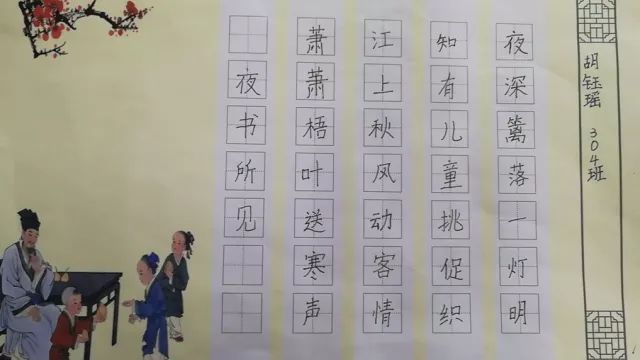 夜书所见
萧萧梧叶送寒声
江上秋风动客情
知有儿童挑促织
夜深篱落一灯明
胡钰瑶 304班